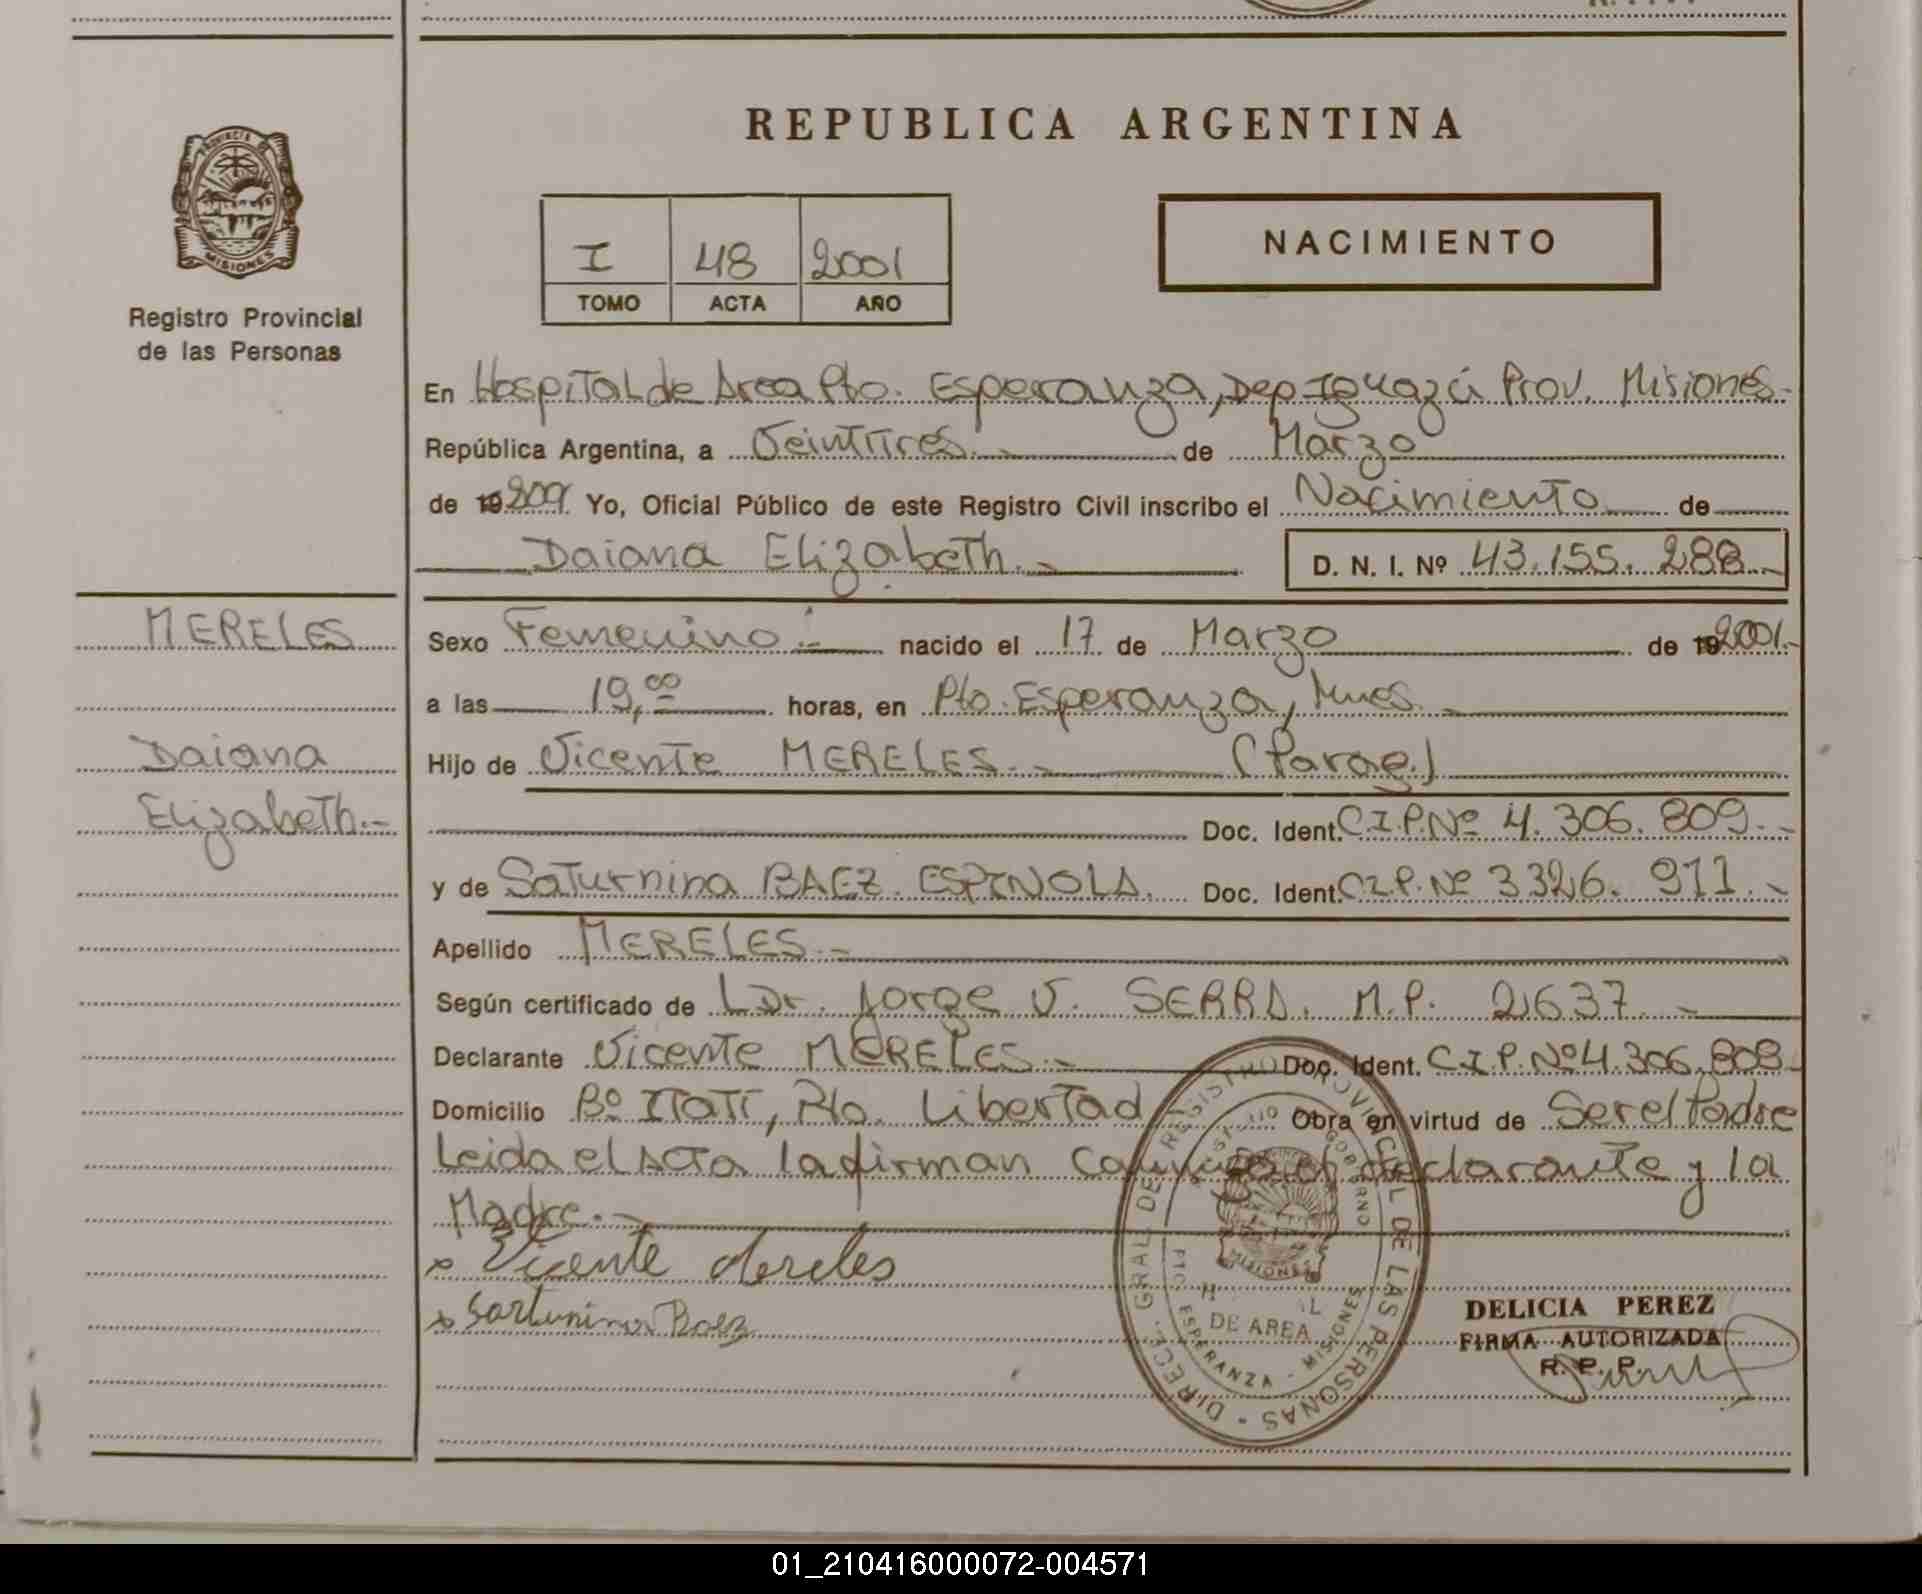 REPUBLICA ARGENTINA
PROVINCIA DE
MISIONES
Registro Provincial
de las Personas
I 48 2001
TOMO ACTA AÑO
NACIMIENTO
En Hospital de Area Pto. Esperanza, Dep Iguazú Prov. Misiones.-
República Argentina, a Veintitres.- de Marzo
de 19 2001. Yo, Oficial Público de este Registro Civil inscribo el Nacimiento de
Daiana Elizabeth.- D. N. I. Nº 43.155.288.-
MERELES
Daiana
Elizabeth.-
Sexo Femenino.- nacido el 17 de Marzo de 19 2001.-
a las 19,00 horas, en Pto. Esperanza, Mnes.-
Hijo de Vicente MERELES.- (Parag.)
Doc. Ident. C.I.P.Nº 4.306.809.-
y de Saturnina BAEZ ESPINOLA. Doc. Ident. C.I.P.Nº 3326.911.-
Apellido MERELES.-
Según certificado de Dr. Jorge V. SERRA. M.P. 2637.-
Declarante Vicente MERELES.- Doc. Ident. C.I.P.Nº 4.306.809.-
Domicilio Bº ITATI, Pto. Libertad Obra en virtud de Ser el Padre
Leida el Acta la firman conmigo el declarante y la
Madre.-
x Vicente Mereles
x Sarturnina Baez
DIREC. GRAL. DE REGISTRO PROVINCIAL DE LAS PERSONAS
GOBIERNO
MISIONES
DE AREA
ESPERANZA - MISIONES
DELICIA PEREZ
FIRMA AUTORIZADA
R. P. P.
01_210416000072-004571